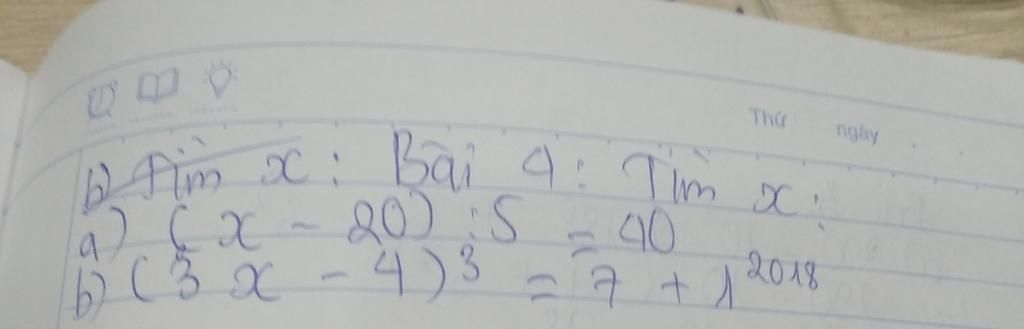 Thứ ngày
b) Tìm x: Bài 4: Tìm x:
a) (x - 20) : 5 = 40
b) (3x - 4)³ = 7 + 1²⁰¹⁸